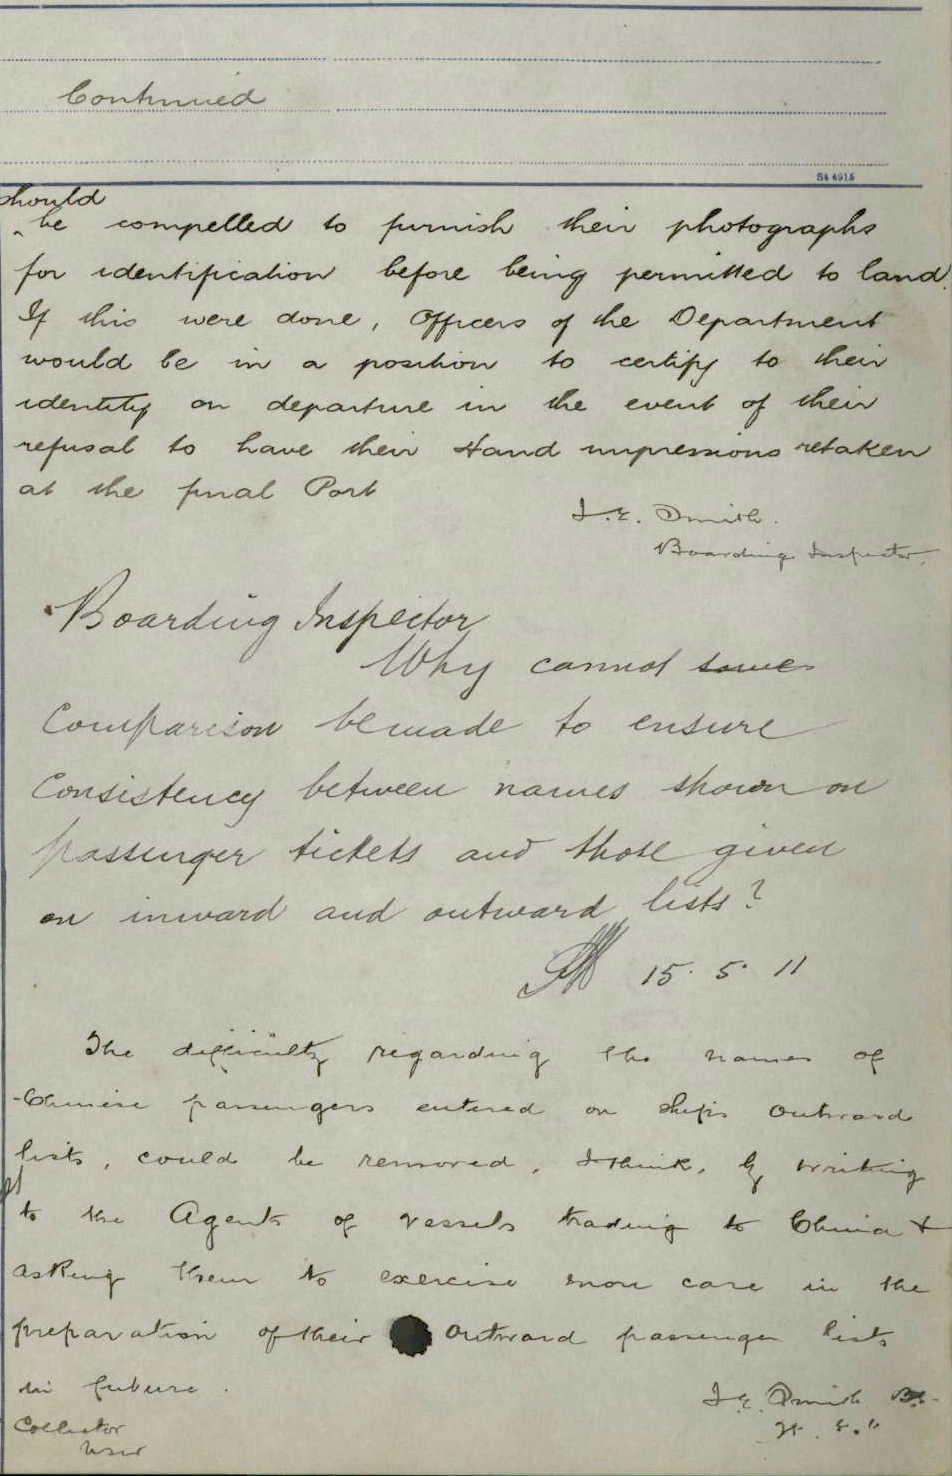 Continued
S4 4915
should
^ be compelled to furnish their photographs
for identification before being permitted to land.
If this were done, Officers of the Department
would be in a position to certify to their
identity on departure in the event of their
refusal to have their Hand impressions retaken
at the final Port
J.E. Smith.
Boarding Inspector.
Boarding Inspector
Why cannot some
Comparison be made to ensure
Consistency between names shown on
passenger tickets and those given
on inward and outward lists?
15. 5. 11
The difficulty regarding the names of
Chinese passengers entered on ships outward
lists, could be removed, I think, by writing
to the Agents of vessels trading to China &
asking them to exercise more care in the
preparation of their outward passenger lists
in future.
J.E. Smith B.I.
Collector